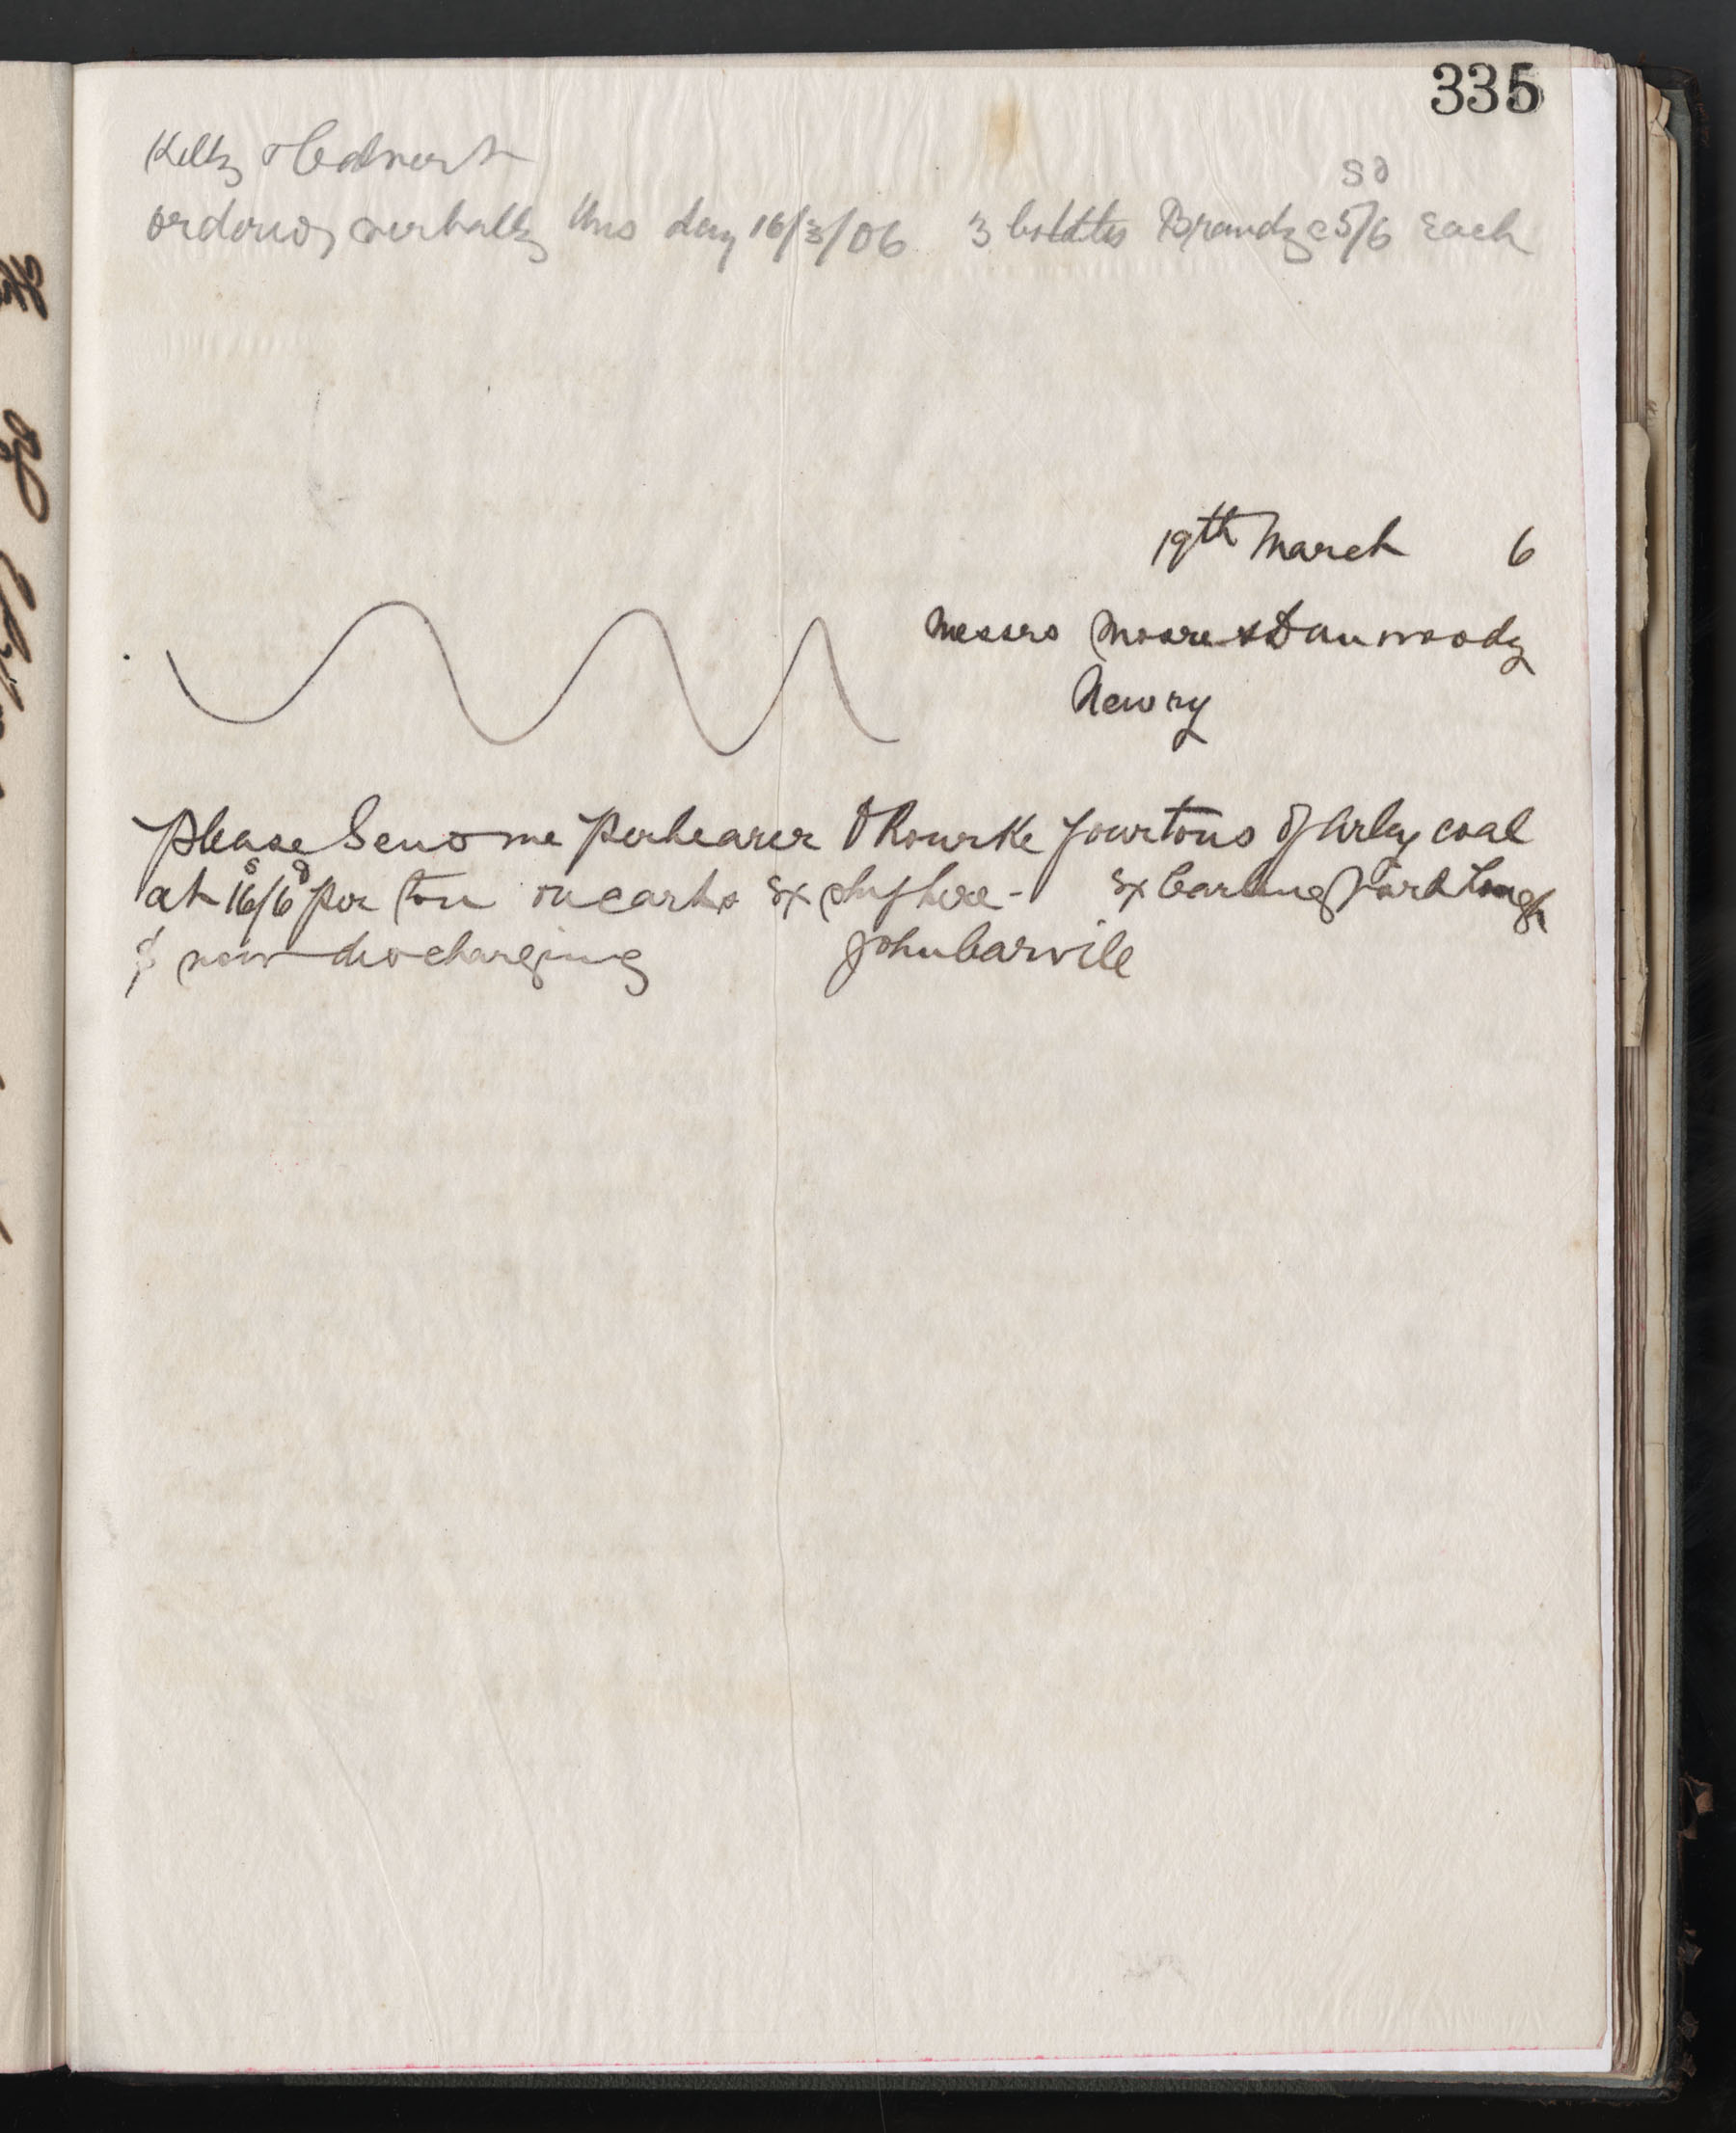 335
Kelly &
ordered verbally this day 16/3/06 3 bottles Brandy @ 5/6 each
s d
19th March 6
Messrs Moore & Dunwoody
Newry
Please Send me per bearer O Rourke four tons of Arley coal
at 16/6 per ton on carts Ex ship here - Ex Carlingford Lough
& now discharging John Carvile